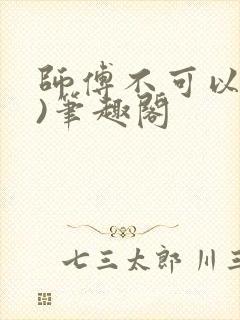 師傅不可以
)筆趣閣
七三太郎 川三